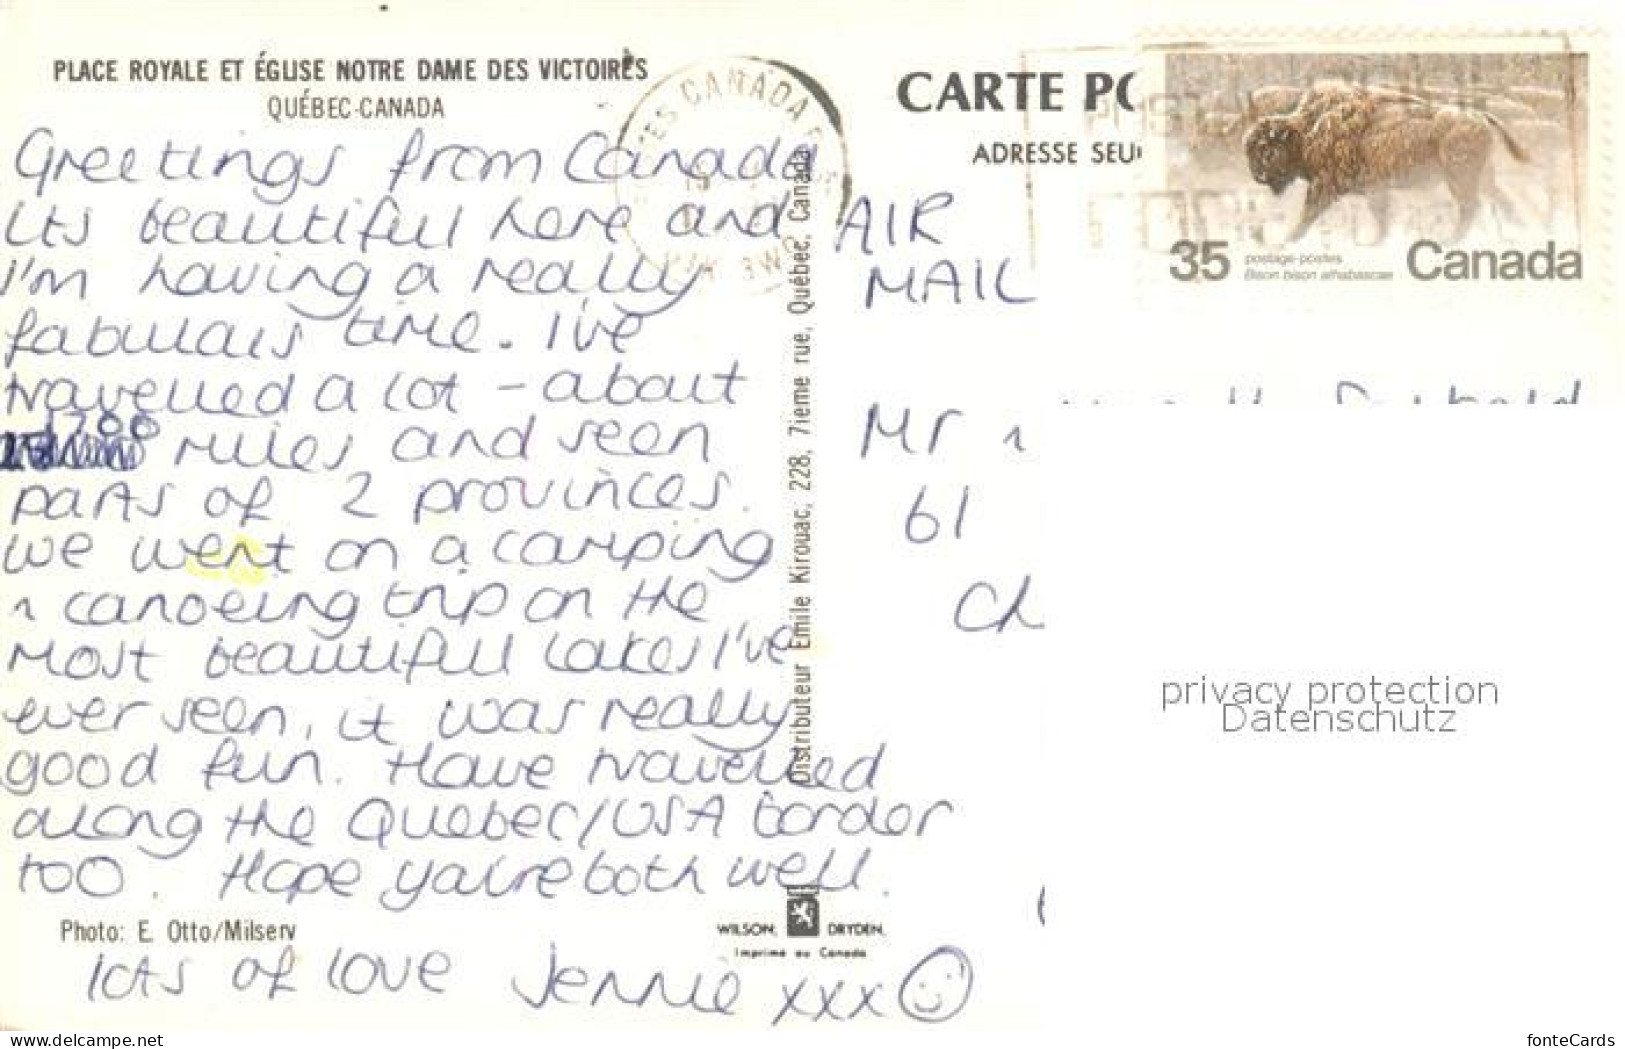 PLACE ROYALE ET ÉGLISE NOTRE DAME DES VICTOIRES
QUÉBEC-CANADA
Greetings from Canada
its beautiful here and
I'm having a really
fabulous time. I've
travelled a lot - about
1700
miles and seen
parts of 2 provinces.
we went on a camping
n canoeing trip on the
most beautiful lakes I've
ever seen, it was really
good fun. Have travelled
along the Quebec/USA border
too. Hope you're both well.
Photo: E. Otto/Milserv
lots of love Jennie xxx
Distributeur Emile Kirouac, 228, 7ieme rue, Québec, Canada
WILSON, DRYDEN,
Imprimé au Canada
CANADA
CARTE PO
ADRESSE SEU
35 postage-postes
Bison bison athabascae
Canada
AIR
MAIL
Mr n
61
Ch
privacy protection
Datenschutz
www.delcampe.net
fonteCards